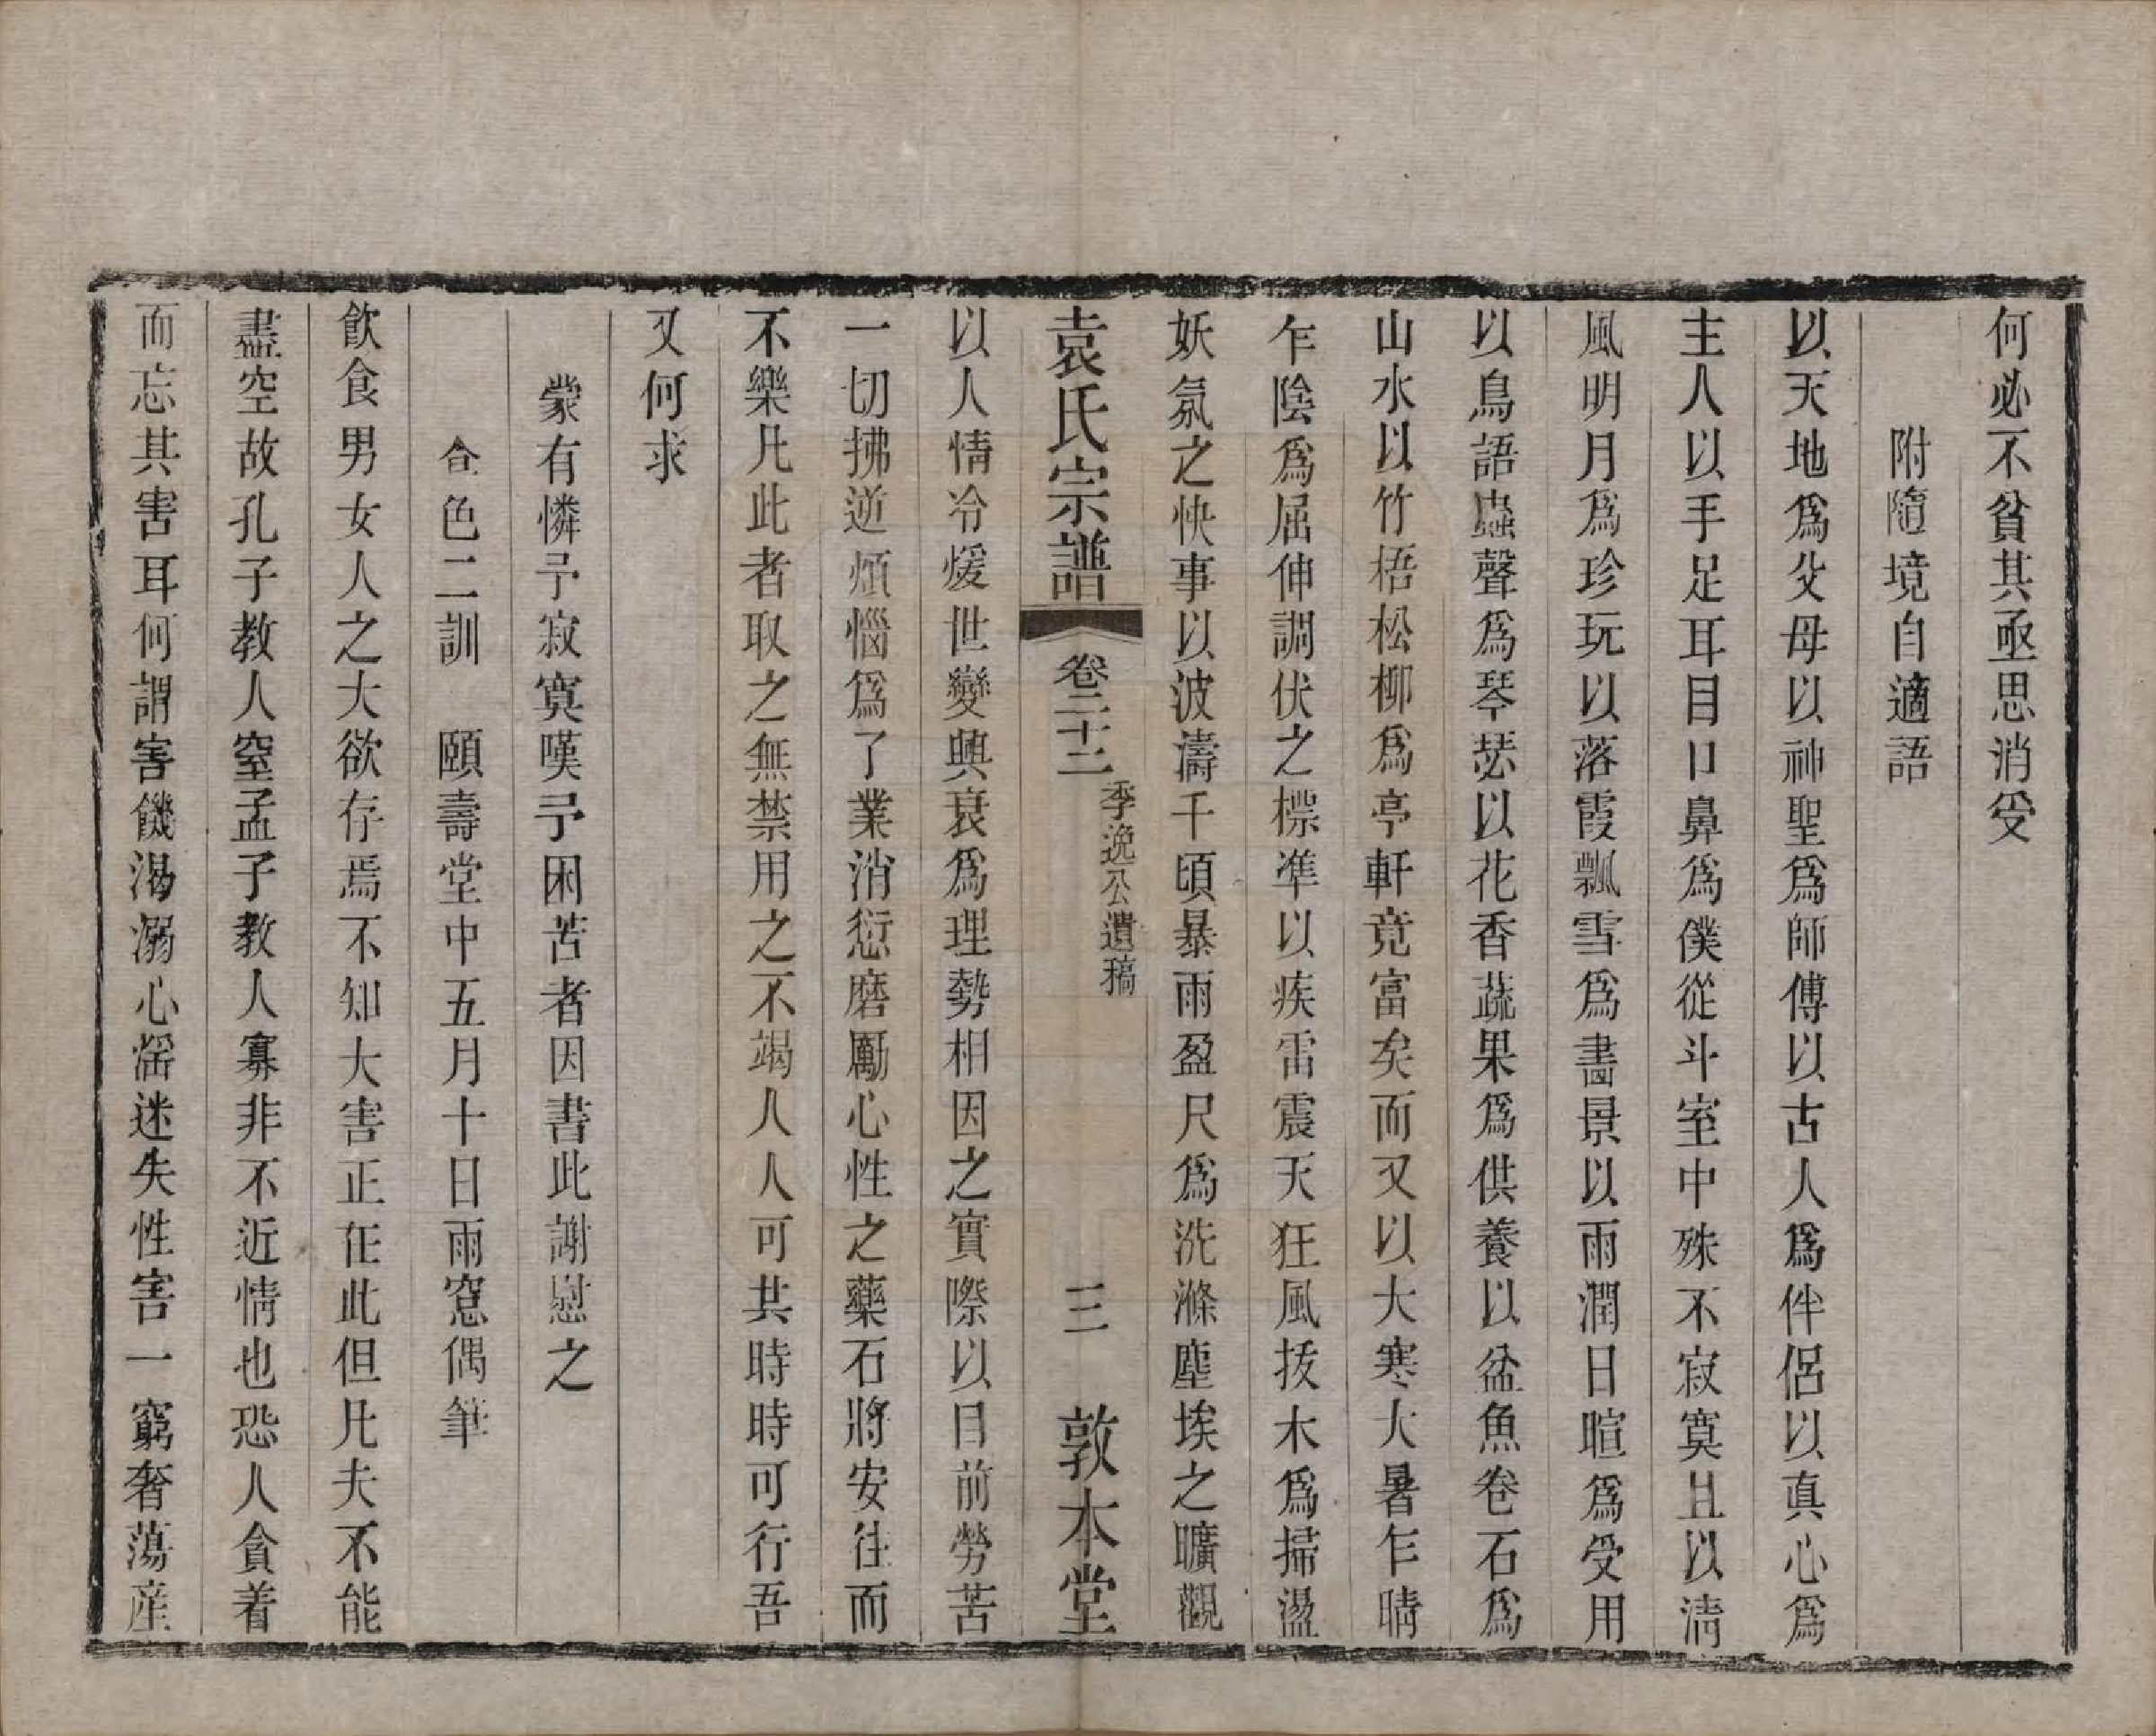 何必不貧其亟思消受
附隨境自適語
以天地爲父母以神聖爲師傅以古人爲伴侶以真心爲
主人以手足耳目口鼻爲僕從斗室中殊不寂寞且以淸
風明月爲珍玩以落霞飄雪爲畵景以雨潤日暄爲受用
以鳥語蟲聲爲琴瑟以花香蔬果爲供養以盆魚卷石爲
山水以竹梧松柳爲亭軒竟富矣而又以大寒大暑乍晴
乍陰爲屈伸調伏之標準以疾雷震天狂風拔木爲掃盪
妖氛之快事以波濤千頃暴雨盈尺爲洗滌塵埃之曠觀
袁氏宗譜
卷二十二
季逸公遺稿
三
敦本堂
以人情冷煖世變興衰爲理勢相因之實際以目前勞苦
一切拂逆煩惱爲了業消愆磨勵心性之藥石將安往而
不樂凡此者取之無禁用之不竭人人可共時時可行吾
又何求
蒙有憐予寂寞嘆予困苦者因書此謝慰之
食色二訓 頤壽堂中五月十日雨窓偶筆
飮食男女人之大欲存焉不知大害正在此但凡夫不能
盡空故孔子教人窒孟子教人寡非不近情也恐人貪着
而忘其害耳何謂害饑渴溺心淫迷失性害一窮奢蕩産